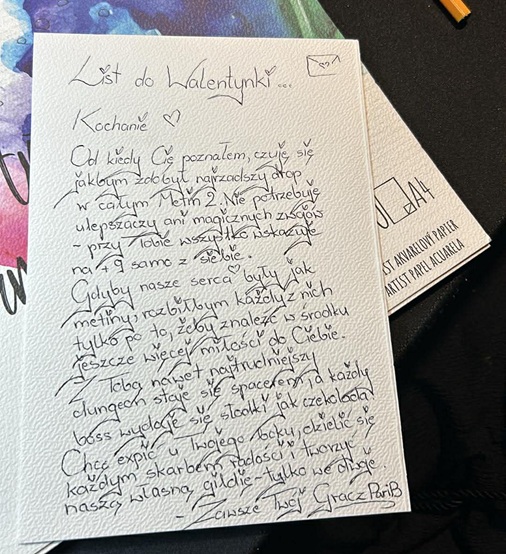 List do Walentynki...
Kochanie ♡
Od kiedy Cię poznałem, czuję się
jakbym zdobył najrzadszy drop
w całym Metin 2. Nie potrzebuję
ulepszaczy ani magicznych zwojów
~ przy Tobie wszystko wskakuje
na +9 samo z siebie.
Gdyby nasze serca były jak
metiny, rozbiłbym każdy z nich
tylko po to, żeby znaleźć w środku
jeszcze więcej miłości do Ciebie.
Z Tobą nawet najtrudniejszy
dungeon staje się spacerem, a każdy
boss wydaje się słodki jak czekolada
Chcę expić u Twojego boku, dzielić się
każdym skarbem radości i tworzyć
naszą własną gildię ~ tylko we dwoje.
~ Zawsze Twój Gracz PariB
A4
ST AKVARELOVÝ PAPIER
ARTIST PAPEL ACUARELA